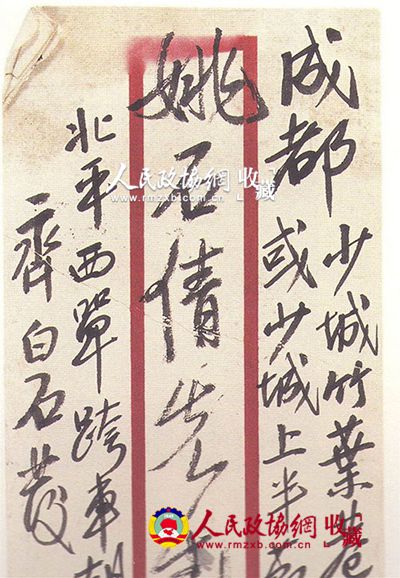 成都少城竹葉巷
或少城上半
姚石倩先生
北平西單跨車胡
齊白石發
人民政協網 收藏
www.rmzxb.com.cn
人民政協網 收藏
www.rmzxb.com.cn